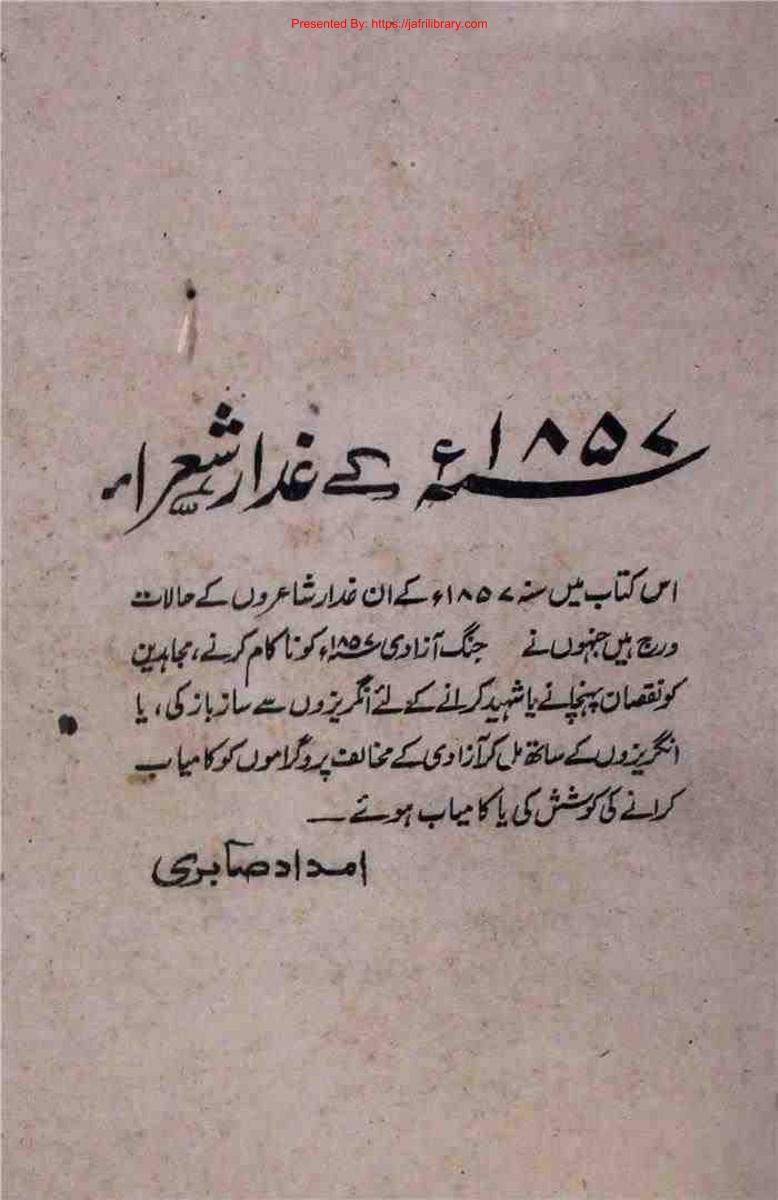 Presented By: https://jafrilibrary.com
۱۸۵۷ء کے غدار شعراء
اس کتاب میں سنہ ۱۸۵۷ء کے ان غدار شاعروں کے حالات
درج ہیں جنہوں نے جنگ آزادی ۱۸۵۷ء کو ناکام کرنے، مجاہدین
کو نقصان پہنچانے یا شہید کرانے کے لئے انگریزوں سے ساز باز کی، یا
انگریزوں کے ساتھ مل کر آزادی کے مخالف پروگراموں کو کامیاب
کرانے کی کوشش کی یا کامیاب ہوئے —
امداد صابری